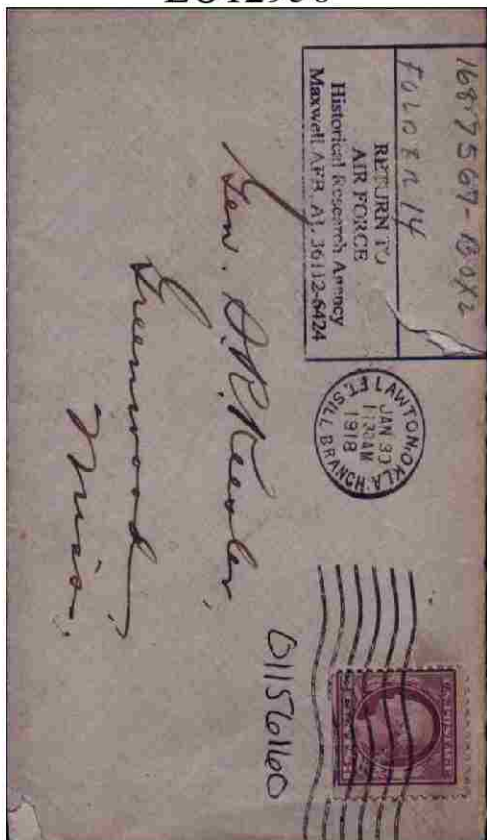 1687567-BOX2
FOLDER 14
RETURN TO
AIR FORCE
Historical Research Agency
Maxwell AFB, AL 36112-6424
LAWTON, OKLA.
JAN 30
1918
FT. SILL BRANCH
Gen. S. R. Keesler,
Greenwood,
Miss.
01156160